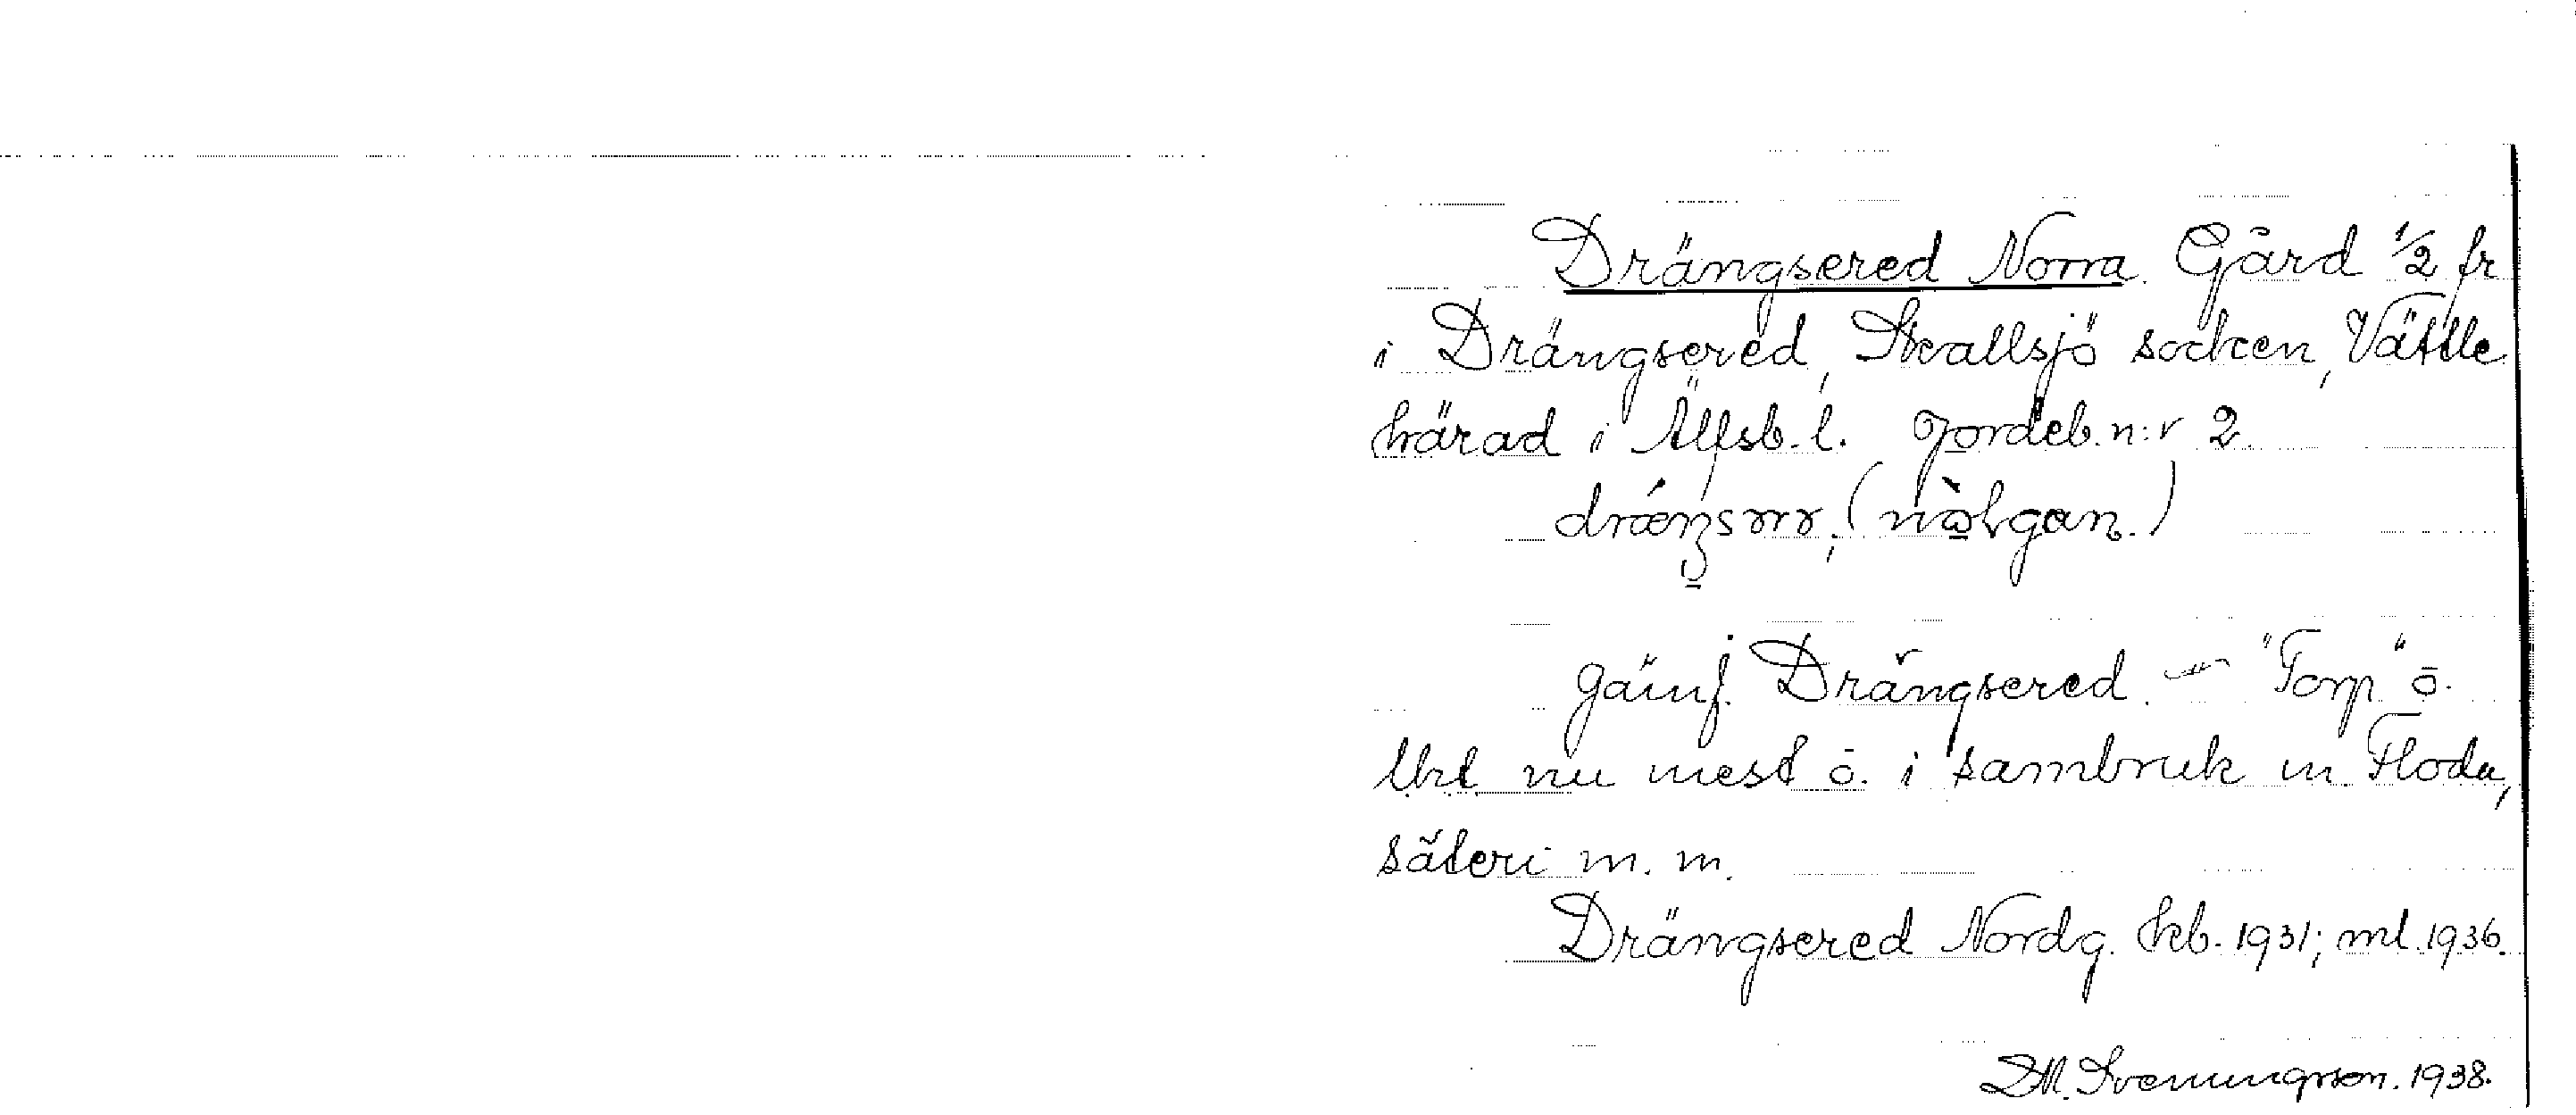 Drängsered Norra. Gård 1/2 fr
i Drängsered, Skallsjö socken, Vättle
härad i Älfsb. l. Jordeb. n:r 2.
Jämf. Drängsered. — "Torp" o.
Utl nu mest o. i sambruk m. Floda,
säteri m. m.
Drängsered Nordg. kb. 1931; ml. 1936.
D.M. Svenungsson. 1938.